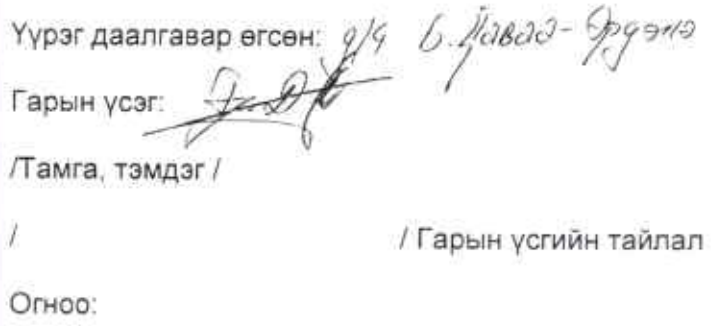 Үүрэг даалгавар өгсөн: д/ч Б. Даваа-Эрдэнэ
Гарын үсэг:
/Тамга, тэмдэг /
/ / Гарын үсгийн тайлал
Огноо: